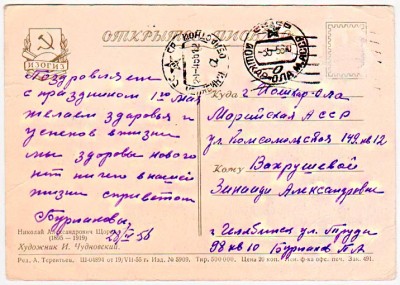 ИЗОГИЗ
ОТКРЫТОЕ ПИСЬМО
Поздравляем
с праздником 1го мая
желаем здоровья и
успехов в жизни
мы здоровы нового
нет ничего в нашей
жизни с приветом
Бурлаковы
28/IV 56
Николай Александрович
(1895 — 1919)
Художник И. Чудновский.
Куда г. Йошкар-Ола
Марийская АССР
ул Комсомольская 149 кв 12
Кому Вахрушевой
Зинаиде Александровне
г Челябинск ул Труда
98 кв 10
Ред. А. Терентьев. Ш-04894 от 19/VII-55 г. Изд. № 5909. Тир. 500 000. Цена 20 коп. Зак. 491.